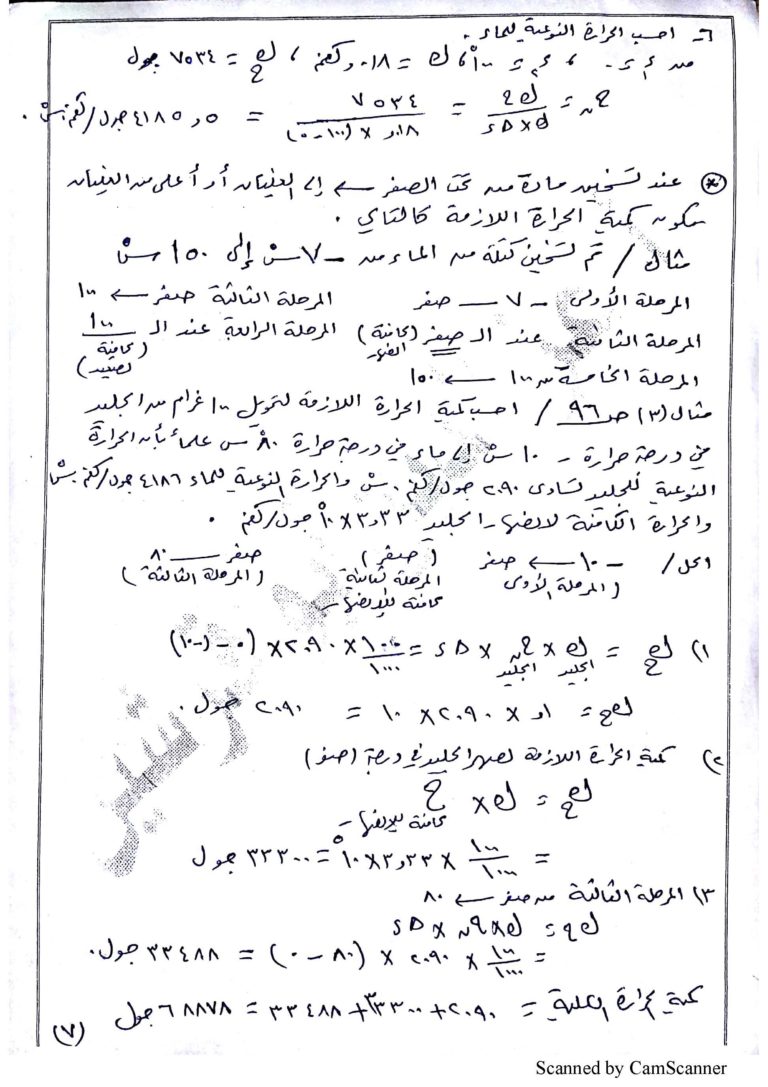 ٦- احسب الحرارة النوعية للماء .
من د١ = ٠ ، د٢ = ١٠٠° ، ك = ٠١٨ر٠ كغم ، كح = ٧٥٣٤ جول
حن = كح / ك × Δد = ٧٥٣٤ / ٠١٨ر × (١٠٠ – ٠) = ٤١٨٥ر٥ جول/كغم.°س .
* عند تسخين مادة من تحت الصفر ← إلى الغليان أو أعلى من الغليان
تكون كمية الحرارة اللازمة كالتالي .
مثال / تم تسخين كتلة من الماء من – ٧°س إلى ١٥٠°س
المرحلة الأولى – ٧ — صفر المرحلة الثالثة صفر ← ١٠٠
المرحلة الثانية عند الـ صفر (كامنة انصهار) المرحلة الرابعة عند الـ ١٠٠ (كامنة تصعيد)
المرحلة الخامسة من ١٠٠ ← ١٥٠
مثال (٣) ص ٩٦ / احسب كمية الحرارة اللازمة لتحويل ١٠٠ غرام من الجليد
في درجة حرارة – ١٠°س إلى ماء في درجة حرارة ٨٠°س علماً بأن الحرارة
النوعية للجليد تساوى ٢٠٩٠ جول/كغم.°س والحرارة النوعية للماء ٤١٨٦ جول/كغم.°س
والحرارة الكامنة لانصهار الجليد ٣٣ر٣ × ١٠^٥ جول/كغم .
الحل / – ١٠ ← صفر (صفر) صفر — ٨٠
(المرحلة الأولى) المرحلة الثانية (المرحلة الثالثة)
كامنة للانصهار
١) كح = ك الجليد × حن الجليد × Δد = ١٠٠/١٠٠٠ × ٢٠٩٠ × (٠ – (–١٠))
كح = ١ر × ٢٠٩٠ × ١٠ = ٢٠٩٠ جول .
٢) كمية الحرارة اللازمة لصهر الجليد في درجة (صفر)
كح = ك × ح كامنة للانصهار
= ١٠٠/١٠٠٠ × ٣٣ر٣ × ١٠^٥ = ٣٣٣٠٠ جول
٣) المرحلة الثالثة من صفر ← ٨٠
كح = ك × حن × Δد
= ١٠٠/١٠٠٠ × ٢٠٩٠ × (٨٠ – ٠) = ٣٣٤٨٨ جول.
كمية الحرارة الكلية = ٢٠٩٠ + ٣٣٣٠٠ + ٣٣٤٨٨ = ٦٨٨٧٨ جول
(٧)
Scanned by CamScanner